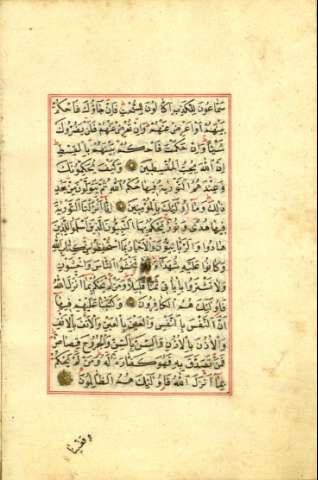 سَمَّاعُونَ لِلْكَذِبِ أَكَّالُونَ لِلسُّحْتِ فَإِنْ جَاؤُكَ فَاحْكُمْ
بَيْنَهُمْ أَوْ أَعْرِضْ عَنْهُمْ وَإِنْ تُعْرِضْ عَنْهُمْ فَلَنْ يَضُرُّوكَ
شَيْئًا وَإِنْ حَكَمْتَ فَاحْكُمْ بَيْنَهُمْ بِالْقِسْطِ
إِنَّ اللَّهَ يُحِبُّ الْمُقْسِطِينَ وَكَيْفَ يُحَكِّمُونَكَ
وَعِنْدَهُمُ التَّوْرٰيةُ فِيهَا حُكْمُ اللَّهِ ثُمَّ يَتَوَلَّوْنَ مِنْ بَعْدِ
ذٰلِكَ وَمَا أُولٰئِكَ بِالْمُؤْمِنِينَ إِنَّا أَنْزَلْنَا التَّوْرٰيةَ
فِيهَا هُدًى وَنُورٌ يَحْكُمُ بِهَا النَّبِيُّونَ الَّذِينَ أَسْلَمُوا لِلَّذِينَ
هَادُوا وَالرَّبَّانِيُّونَ وَالْأَحْبَارُ بِمَا اسْتُحْفِظُوا مِنْ كِتَابِ اللَّهِ
وَكَانُوا عَلَيْهِ شُهَدَاءَ فَلَا تَخْشَوُا النَّاسَ وَاخْشَوْنِ
وَلَا تَشْتَرُوا بِآيَاتِي ثَمَنًا قَلِيلًا وَمَنْ لَمْ يَحْكُمْ بِمَا أَنْزَلَ اللَّهُ
فَأُولٰئِكَ هُمُ الْكَافِرُونَ وَكَتَبْنَا عَلَيْهِمْ فِيهَا
أَنَّ النَّفْسَ بِالنَّفْسِ وَالْعَيْنَ بِالْعَيْنِ وَالْأَنْفَ بِالْأَنْفِ
وَالْأُذُنَ بِالْأُذُنِ وَالسِّنَّ بِالسِّنِّ وَالْجُرُوحَ قِصَاصٌ
فَمَنْ تَصَدَّقَ بِهِ فَهُوَ كَفَّارَةٌ لَهُ وَمَنْ لَمْ يَحْكُمْ
بِمَا أَنْزَلَ اللَّهُ فَأُولٰئِكَ هُمُ الظَّالِمُونَ
وقفينا